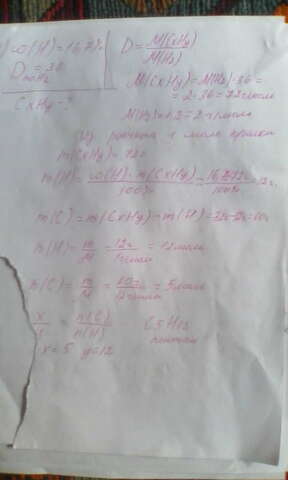 ω(H) = 16,7%
D = M(CxHy) / M(H2)
D по H2 = 36
M(CxHy) = M(H2)·36 =
= 2·36 = 72 г/моль
CxHy - ?
M(H2) = 1·2 = 2 г/моль
1 моль
m(CxHy) = 72г
m(H) = ω(H)·m(CxHy) / 100% = 16,7·72г / 100% = 12г.
m(C) = m(CxHy) - m(H) = 72г - 12г = 60г
n(H) = m / M = 12г / 1г/моль = 12моль
n(C) = m / M = 60г / 12г/моль = 5моль
x / y = n(C) / n(H)
C5H12
x = 5 y = 12
пентан